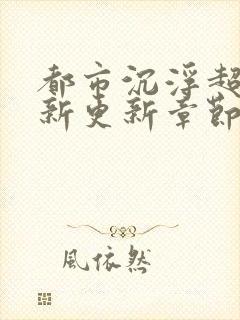 都市沉浮超
新更新章節
風依然